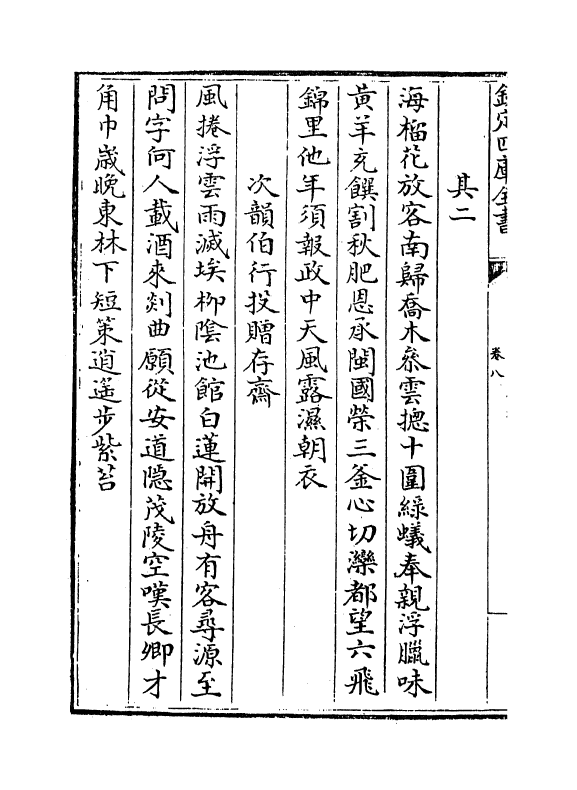 欽定四庫全書
卷八
其二
海榴花放客南歸喬木叅雲摠十圍綠蟻奉親浮臘味
黃羊充饌割秋肥恩承閩國榮三釜心切灤都望六飛
錦里他年須報政中天風露濕朝衣
次韻伯行投贈存齋
風捲浮雲雨滅埃柳陰池館白蓮開放舟有客尋源至
問字何人載酒來剡曲願從安道隠茂陵空嘆長卿才
角巾歲晚東林下短策逍遙步紫苔